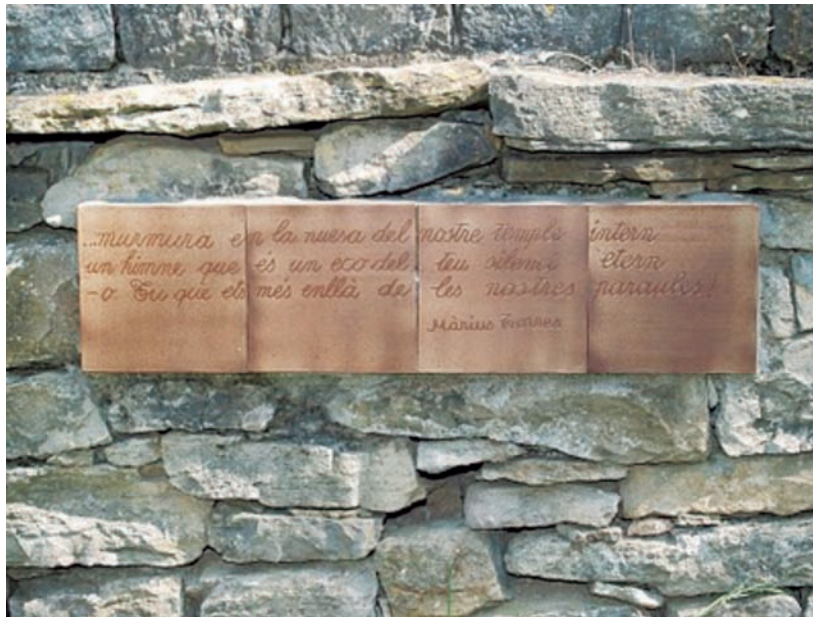 ...murmura en la nuesa del nostre temple intern
un himne que és un eco del teu silenci etern
-o Tu que ets més enllà de les nostres paraules!
Màrius Torres